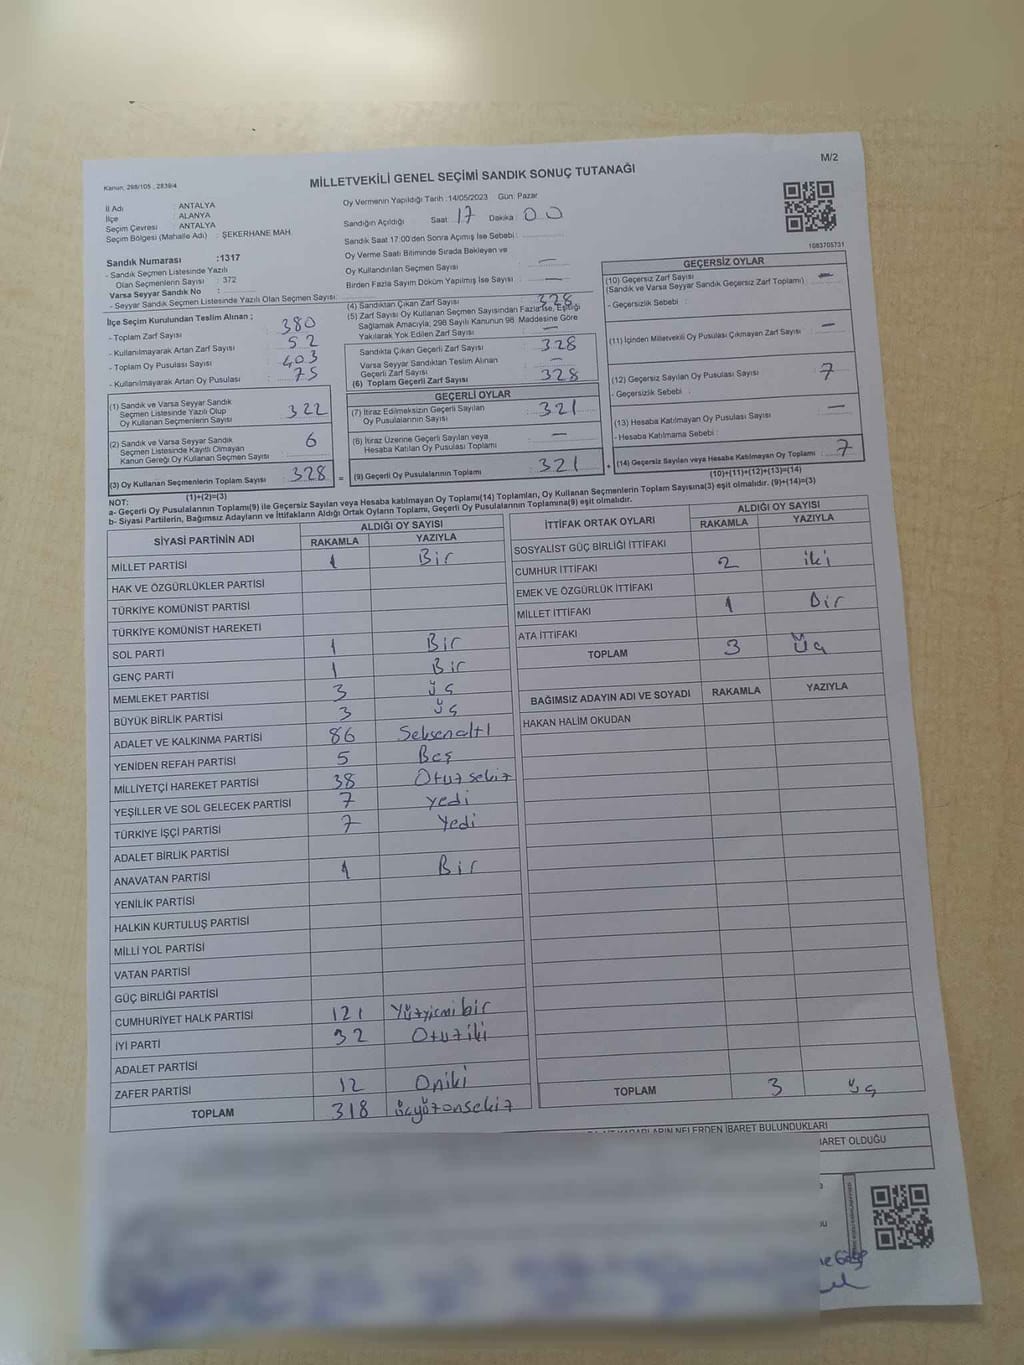 M/2
Kanun, 298/105 , 2839/4
MİLLETVEKİLİ GENEL SEÇİMİ SANDIK SONUÇ TUTANAĞI
İl Adı : ANTALYA
İlçe : ALANYA
Seçim Çevresi : ANTALYA
Seçim Bölgesi (Mahalle Adı) : ŞEKERHANE MAH.
Oy Vermenin Yapıldığı Tarih :14/05/2023 Gün: Pazar
Sandığın Açıldığı Saat 17 Dakika 00
Sandık Saat 17:00'den Sonra Açımış İse Sebebi :
Oy Verme Saati Bitiminde Sırada Bekleyen ve
Oy Kullandırılan Seçmen Sayısı —
Birden Fazla Sayım Döküm Yapılmış İse Sayısı —
1083705731
Sandık Numarası :1317
- Sandık Seçmen Listesinde Yazılı
Olan Seçmenlerin Sayısı : 372
Varsa Seyyar Sandık No :
- Seyyar Sandık Seçmen Listesinde Yazılı Olan Seçmen Sayısı:
İlçe Seçim Kurulundan Teslim Alınan ;
- Toplam Zarf Sayısı 380
- Kullanılmayarak Artan Zarf Sayısı 52
- Toplam Oy Pusulası Sayısı 403
- Kullanılmayarak Artan Oy Pusulası 75
(1) Sandık ve Varsa Seyyar Sandık
Seçmen Listesinde Yazılı Olup
Oy Kullanan Seçmenlerin Sayısı 322
(2) Sandık ve Varsa Seyyar Sandık
Seçmen Listesinde Kayıtlı Olmayan
Kanun Gereği Oy Kullanan Seçmen Sayısı : 6
(3) Oy Kullanan Seçmenlerin Toplam Sayısı 328 =
(1)+(2)=(3)
(4) Sandıktan Çıkan Zarf Sayısı 328
(5) Zarf Sayısı Oy Kullanan Seçmen Sayısından Fazla İse, Eşitliği
Sağlamak Amacıyla, 298 Sayılı Kanunun 98. Maddesine Göre
Yakılarak Yok Edilen Zarf Sayısı —
Sandıkta Çıkan Geçerli Zarf Sayısı 328
Varsa Seyyar Sandıktan Teslim Alınan
Geçerli Zarf Sayısı —
(6) Toplam Geçerli Zarf Sayısı 328
GEÇERLİ OYLAR
(7) İtiraz Edilmeksizin Geçerli Sayılan
Oy Pusulalarının Sayısı 321
(8) İtiraz Üzerine Geçerli Sayılan veya
Hesaba Katılan Oy Pusulası Toplamı —
(9) Geçerli Oy Pusulalarının Toplamı 321 +
GEÇERSİZ OYLAR
(10) Geçersiz Zarf Sayısı —
(Sandık ve Varsa Seyyar Sandık Geçersiz Zarf Toplamı)
- Geçersizlik Sebebi :
(11) İçinden Milletvekili Oy Pusulası Çıkmayan Zarf Sayısı —
(12) Geçersiz Sayılan Oy Pusulası Sayısı 7
- Geçersizlik Sebebi :
(13) Hesaba Katılmayan Oy Pusulası Sayısı —
- Hesaba Katılmama Sebebi :
(14) Geçersiz Sayılan veya Hesaba Katılmayan Oy Toplamı : 7
(10)+(11)+(12)+(13)=(14)
NOT:
a- Geçerli Oy Pusulalarının Toplamı(9) ile Geçersiz Sayılan veya Hesaba katılmayan Oy Toplamı(14) Toplamları, Oy Kullanan Seçmenlerin Toplam Sayısına(3) eşit olmalıdır. (9)+(14)=(3)
b- Siyasi Partilerin, Bağımsız Adayların ve İttifakların Aldığı Ortak Oyların Toplamı, Geçerli Oy Pusulalarının Toplamına(9) eşit olmalıdır.
SİYASİ PARTİNİN ADI ALDIĞI OY SAYISI
RAKAMLA YAZIYLA
MİLLET PARTİSİ 1 Bir
HAK VE ÖZGÜRLÜKLER PARTİSİ
TÜRKİYE KOMÜNİST PARTİSİ
TÜRKİYE KOMÜNİST HAREKETİ
SOL PARTİ 1 Bir
GENÇ PARTİ 1 Bir
MEMLEKET PARTİSİ 3 üç
BÜYÜK BİRLİK PARTİSİ 3 üç
ADALET VE KALKINMA PARTİSİ 86 Seksenaltı
YENİDEN REFAH PARTİSİ 5 Beş
MİLLİYETÇİ HAREKET PARTİSİ 38 Otuzsekiz
YEŞİLLER VE SOL GELECEK PARTİSİ 7 yedi
TÜRKİYE İŞÇİ PARTİSİ 7 Yedi
ADALET BİRLİK PARTİSİ
ANAVATAN PARTİSİ 1 Bir
YENİLİK PARTİSİ
HALKIN KURTULUŞ PARTİSİ
MİLLİ YOL PARTİSİ
VATAN PARTİSİ
GÜÇ BİRLİĞİ PARTİSİ
CUMHURİYET HALK PARTİSİ 121 Yüzyirmibir
İYİ PARTİ 32 Otuziki
ADALET PARTİSİ
ZAFER PARTİSİ 12 Oniki
TOPLAM 318 üçyüzonsekiz
İTTİFAK ORTAK OYLARI ALDIĞI OY SAYISI
RAKAMLA YAZIYLA
SOSYALİST GÜÇ BİRLİĞİ İTTİFAKI
CUMHUR İTTİFAKI 2 iki
EMEK VE ÖZGÜRLÜK İTTİFAKI
MİLLET İTTİFAKI 1 Bir
ATA İTTİFAKI
TOPLAM 3 Üç
BAĞIMSIZ ADAYIN ADI VE SOYADI RAKAMLA YAZIYLA
HAKAN HALİM OKUDAN
TOPLAM 3 üç
KARARLARIN NELERDEN İBARET BULUNDUKLARI
İBARET OLDUĞU